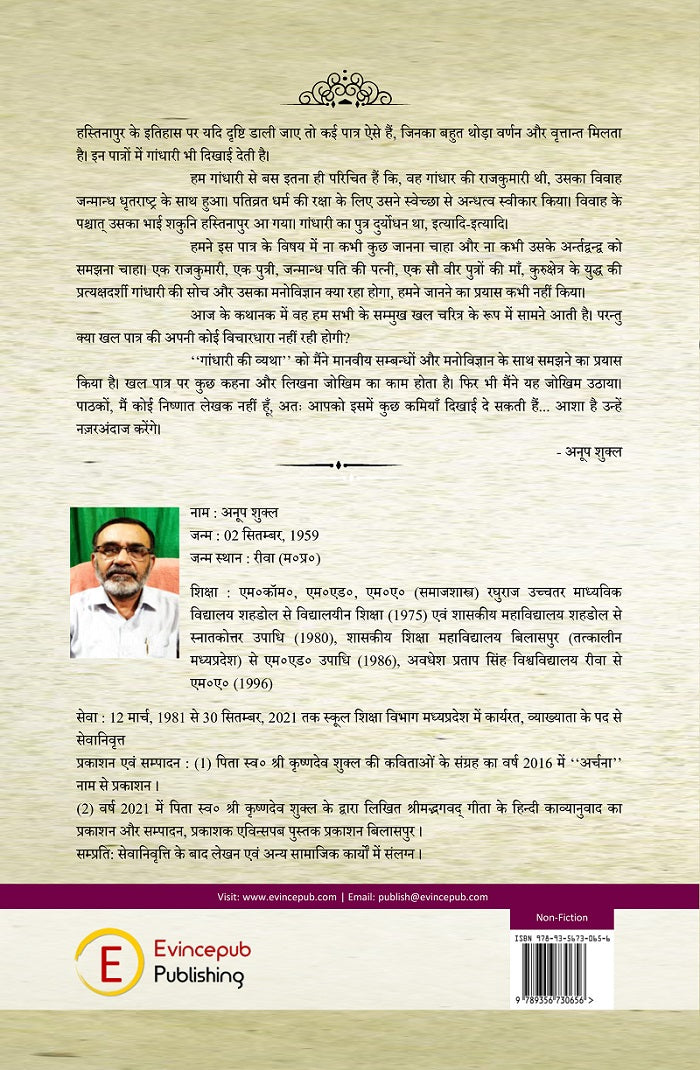 हस्तिनापुर के इतिहास पर यदि दृष्टि डाली जाए तो कई पात्र ऐसे हैं, जिनका बहुत थोड़ा वर्णन और वृत्तान्त मिलता
है। इन पात्रों में गांधारी भी दिखाई देती है।
हम गांधारी से बस इतना ही परिचित हैं कि, वह गांधार की राजकुमारी थी, उसका विवाह
जन्मान्ध धृतराष्ट्र के साथ हुआ। पतिव्रत धर्म की रक्षा के लिए उसने स्वेच्छा से अन्धत्व स्वीकार किया। विवाह के
पश्चात् उसका भाई शकुनि हस्तिनापुर आ गया। गांधारी का पुत्र दुर्योधन था, इत्यादि-इत्यादि।
हमने इस पात्र के विषय में ना कभी कुछ जानना चाहा और ना कभी उसके अर्न्तद्वन्द्व को
समझना चाहा। एक राजकुमारी, एक पुत्री, जन्मान्ध पति की पत्नी, एक सौ वीर पुत्रों की माँ, कुरुक्षेत्र के युद्ध की
प्रत्यक्षदर्शी गांधारी की सोच और उसका मनोविज्ञान क्या रहा होगा, हमने जानने का प्रयास कभी नहीं किया।
आज के कथानक में वह हम सभी के सम्मुख खल चरित्र के रूप में सामने आती है। परन्तु
क्या खल पात्र की अपनी कोई विचारधारा नहीं रही होगी?
‘‘गांधारी की व्यथा’’ को मैंने मानवीय सम्बन्धों और मनोविज्ञान के साथ समझने का प्रयास
किया है। खल पात्र पर कुछ कहना और लिखना जोखिम का काम होता है। फिर भी मैंने यह जोखिम उठाया।
पाठकों, मैं कोई निष्णात लेखक नहीं हूँ, अतः आपको इसमें कुछ कमियाँ दिखाई दे सकती हैं... आशा है उन्हें
नज़रअंदाज करेंगे।
- अनूप शुक्ल
नाम : अनूप शुक्ल
जन्म : 02 सितम्बर, 1959
जन्म स्थान : रीवा (म०प्र०)
शिक्षा : एम०कॉम०, एम०एड०, एम०ए० (समाजशास्त्र) रघुराज उच्चतर माध्यविक
विद्यालय शहडोल से विद्यालयीन शिक्षा (1975) एवं शासकीय महाविद्यालय शहडोल से
स्नातकोत्तर उपाधि (1980), शासकीय शिक्षा महाविद्यालय बिलासपुर (तत्कालीन
मध्यप्रदेश) से एम०एड० उपाधि (1986), अवधेश प्रताप सिंह विश्वविद्यालय रीवा से
एम०ए० (1996)
सेवा : 12 मार्च, 1981 से 30 सितम्बर, 2021 तक स्कूल शिक्षा विभाग मध्यप्रदेश में कार्यरत, व्याख्याता के पद से
सेवानिवृत्त
प्रकाशन एवं सम्पादन : (1) पिता स्व० श्री कृष्णदेव शुक्ल की कविताओं के संग्रह का वर्ष 2016 में ‘‘अर्चना’’
नाम से प्रकाशन ।
(2) वर्ष 2021 में पिता स्व० श्री कृष्णदेव शुक्ल के द्वारा लिखित श्रीमद्भगवद् गीता के हिन्दी काव्यानुवाद का
प्रकाशन और सम्पादन, प्रकाशक एविन्सपब पुस्तक प्रकाशन बिलासपुर ।
सम्प्रति: सेवानिवृत्ति के बाद लेखन एवं अन्य सामाजिक कार्यों में संलग्न ।
Visit: www.evincepub.com | Email: publish@evincepub.com
Non-Fiction
ISBN 978-93-5673-065-6
E Evincepub
Publishing
9 789356 730656 >